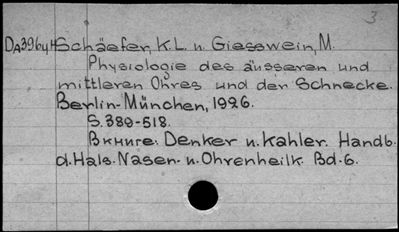 3
DA39644 Schäefer, K.L. u. Giesswein, M.
Physiologie des äusseren und
mittleren Ohres und der Schnecke.
Berlin-München, 1926.
S. 389-518.
Вкниге: Denker u. Kahler. Handb.
d. Hals-Nasen- u. Ohrenheilk. Bd. 6.